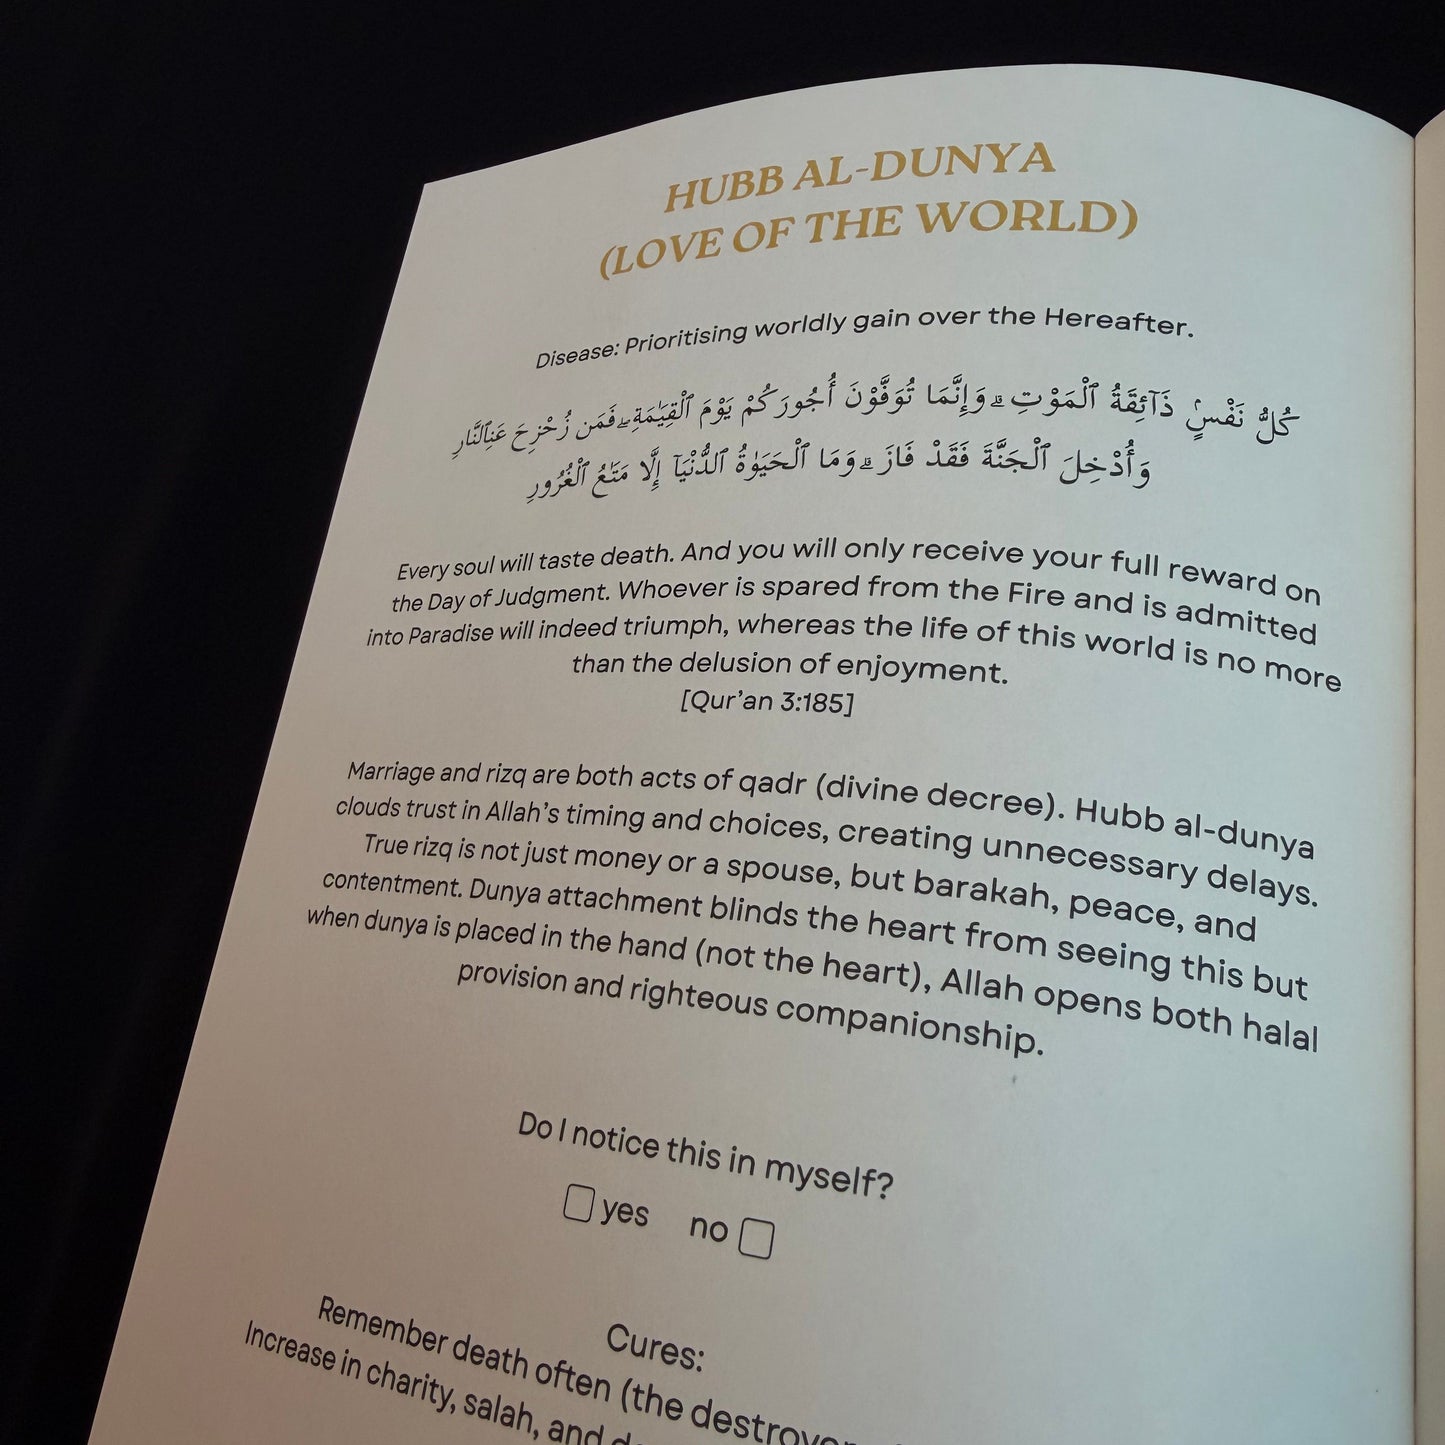 HUBB AL-DUNYA
(LOVE OF THE WORLD)
Disease: Prioritising worldly gain over the Hereafter.
كُلُّ نَفْسٍۢ ذَآئِقَةُ ٱلْمَوْتِ ۗ وَإِنَّمَا تُوَفَّوْنَ أُجُورَكُمْ يَوْمَ ٱلْقِيَـٰمَةِ ۖ فَمَن زُحْزِحَ عَنِ ٱلنَّارِ
وَأُدْخِلَ ٱلْجَنَّةَ فَقَدْ فَازَ ۗ وَمَا ٱلْحَيَوٰةُ ٱلدُّنْيَآ إِلَّا مَتَـٰعُ ٱلْغُرُورِ
Every soul will taste death. And you will only receive your full reward on
the Day of Judgment. Whoever is spared from the Fire and is admitted
into Paradise will indeed triumph, whereas the life of this world is no more
than the delusion of enjoyment.
[Qur’an 3:185]
Marriage and rizq are both acts of qadr (divine decree). Hubb al-dunya
clouds trust in Allah’s timing and choices, creating unnecessary delays.
True rizq is not just money or a spouse, but barakah, peace, and
contentment. Dunya attachment blinds the heart from seeing this but
when dunya is placed in the hand (not the heart), Allah opens both halal
provision and righteous companionship.
Do I notice this in myself?
yes no
Cures:
Remember death often (the destroyer
Increase in charity, salah, and